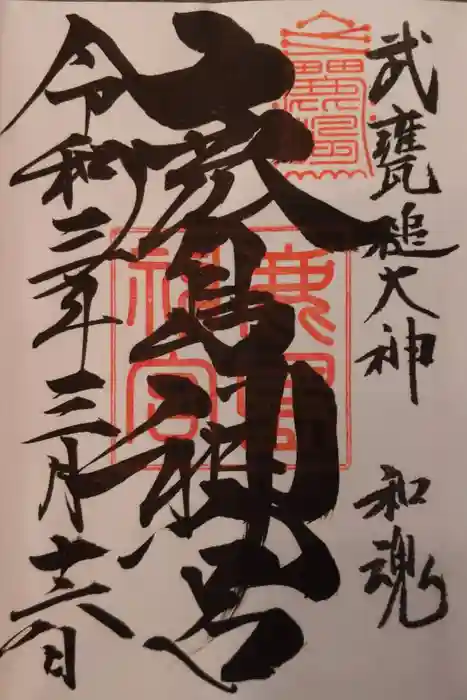 武甕槌大神 和魂
鹿島神宮
令和三年三月十六日
鹿島
神宮